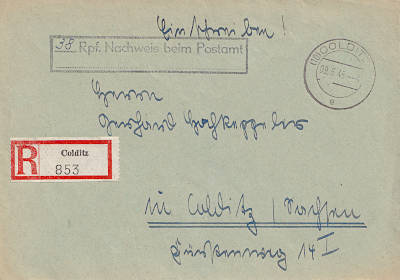 Einschreiben!
38 Rpf. Nachweis beim Postamt
COLDITZ
e
Herrn
Gerhard
R
Colditz
853
in Colditz / Sachsen
14 I